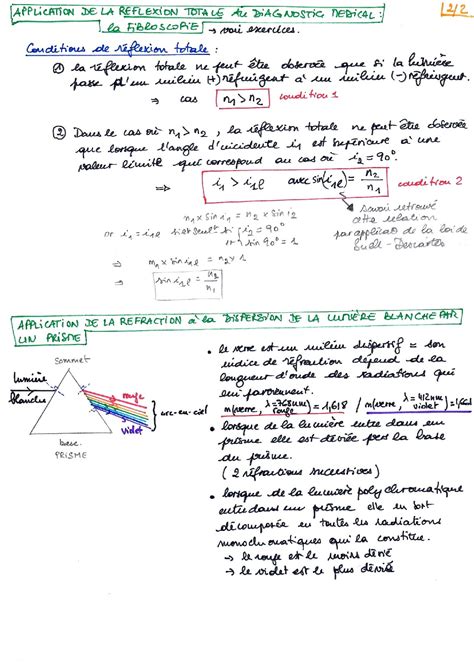 APPLICATION DE LA REFLEXION TOTALE AU DIAGNOSTIC MEDICAL :
la FIBROSCOPIE → voir exercices.
2/2
Conditions de réflexion totale :
① la réflexion totale ne peut être observée que si la lumière
passe d'un milieu (+) réfringent à un milieu (-) réfringent.
⇒ cas n1 > n2 condition 1
② Dans le cas où n1 > n2, la réflexion totale ne peut être observée
que lorsque l'angle d'incidence i1 est supérieure à une
valeur limite qui correspond au cas où i2 = 90°.
⇒ i1 > i1l avec sin(i1l) = n2/n1 condition 2
savoir retrouver
cette relation
par applicat° de la loi de
Snell - Descartes
n1 x sin i1 = n2 x sin i2
or i1 = i1l si et seulet si i2 = 90°
sin 90° = 1
⇒ n1 x sin i1l = n2 x 1
⇒ sin i1l = n2/n1
APPLICATION DE LA REFRACTION à la DISPERSION DE LA LUMIÈRE BLANCHE PAR
UN PRISME
Sommet
lumière
blanche
rouge
arc-en-ciel
violet
base
PRISME
• le verre est un milieu dispersif = son
indice de réfraction dépend de la
longueur d'onde des radiations qui
le traversent.
n(verre, λ=768nm rouge) = 1,618 / n(verre, λ=412nm violet) =
• lorsque de la lumière entre dans un
prisme elle est déviée vers la base
du prisme.
(2 réfractions successives)
• lorsque de la lumière polychromatique
entre dans un prisme elle en sort
décomposée en toutes les radiations
monochromatiques qui la constitue.
→ le rouge est le moins dévié
→ le violet est le plus dévié